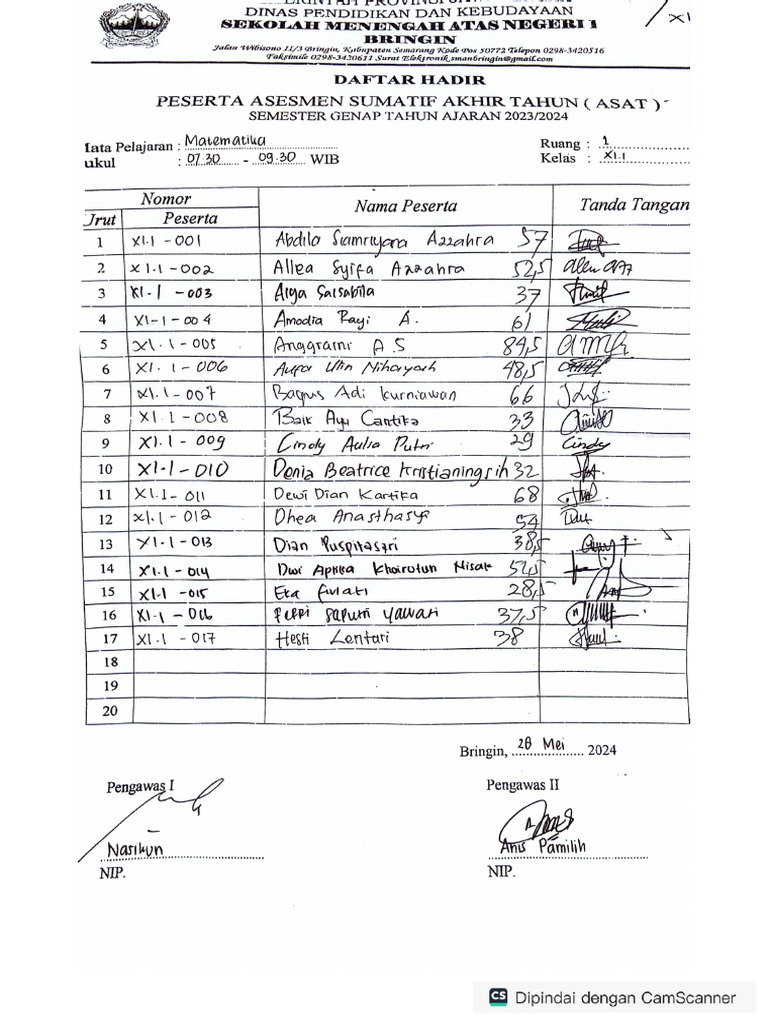 DINAS PENDIDIKAN DAN KEBUDAYAAN
SEKOLAH MENENGAH ATAS NEGERI 1
BRINGIN
Jalan Wibisono 11/3 Bringin, Kabupaten Semarang Kode Pos 50772 Telepon 0298-3420516
Faksimile 0298-3420611 Surat Elektronik smanbringin@gmail.com
DAFTAR HADIR
PESERTA ASESMEN SUMATIF AKHIR TAHUN ( ASAT )
SEMESTER GENAP TAHUN AJARAN 2023/2024
Mata Pelajaran : Matematika Ruang : 1
ukul : 07.30 - 09.30 WIB Kelas : XI.1
Nomor Nama Peserta Tanda Tangan
Urut Peserta
1 XI.1-001 Abdila Azzahra 57
2 XI.1-002 Allea Syifa Azzahra 52,5
3 XI.1-003 Salsabila 37
4 XI-1-004 Amodia Rayi A. 61
5 XI.1-005 Anggraini A.S 84,5
6 XI.1-006 Ulin 48,5
7 XI.1-007 Bagus Adi Kurniawan 66
8 XI.1-008 Baik Ayu Cantika 33
9 XI.1-009 Cindy Aulia Putri 29 Cindy
10 XI-1-010 Denia Beatrice Kristianingsih 32
11 XI.1-011 Dewi Dian Kartika 68
12 XI.1-012 Dhea 54
13 XI.1-013 Dian Puspitasari 38,5
14 XI.1-014 Dwi Khoirotun Nisak
15 XI.1-015 Eka 28,5
16 XI.1-016 Saputri 37,5
17 XI.1-017 Hesti Lentari 38
18
19
20
Bringin, 28 Mei 2024
Pengawas I Pengawas II
Nasikun Anis Pamilih
NIP. NIP.
CS Dipindai dengan CamScanner